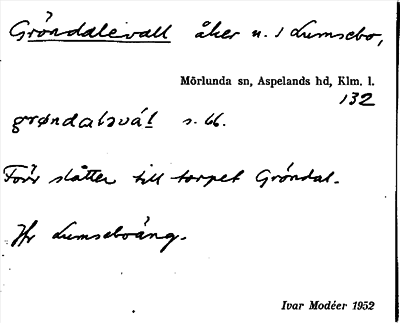 Gröndalevall åker n. 1 Lumsebo,
Mörlunda sn, Aspelands hd, Klm. l.
132
grøndalsvál s. bb.
Förr slåtter till torpet Gröndal.
Jfr Lumseboäng.
Ivar Modéer 1952